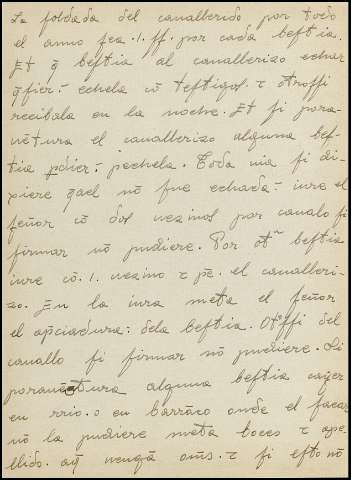 La soldada del cavallerizo por todo
el anno sea .I. ff. por cada bestia.
Et q̄ bestia al cavallerizo echar
q̄sier: echela cō testigos. τ otrossi
recibala en la noche. Et si para-
uētura el cavallerizo alguna bes-
tia pdier: pechela. Toda uia si di-
xiere qael nō fue echada: iure el
señor cō dos uezinos por cavallo si
firmar nō pudiere. Por otᵃ bestia
iure cō .I. uezino τ pē. el cavalleri-
zo. En la iura meta el señor
el apciadura: dela bestia. Otssi del
cavallo si firmar nō pudiere. Si
porauētura alguna bestia cayer
en rrio. o en barrāco onde el sacar
nō la pudiere meta boces τ ape-
llido. aq̄ uengā oms. τ si esto nō